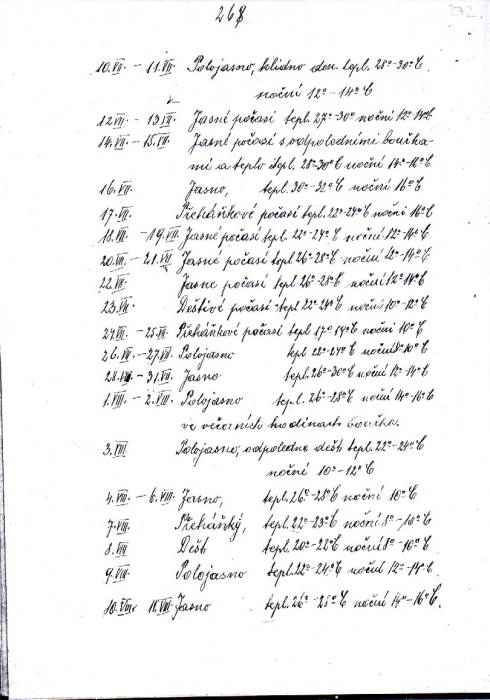 268
272.
10.VII. - 11.VII. Polojasno, klidno den. tepl. 28°-30°C
noční 12°-14°C
12.VII. - 13.VII. Jasné počasí tepl. 27°-30° noční 12°-14°C
14.VII. - 15.VII. Jasné počasí s odpoledními bouřka-
mi a teplo tepl. 28°-30°C noční 14°-16°C
16.VII. Jasno, tepl. 30°-32°C noční 16°C
17.VII. Přeháňkové počasí tepl. 22°-24°C noční 16°C
18.VII. - 19.VII. Jasné počasí tepl. 22°-24°C noční 12°-14°C
20.VII. - 21.VII. Jasné počasí tepl. 26°-28°C noční 12°-14°C
22.VII. Jasné počasí tepl. 26°-28°C noční 12°-14°C
23.VII. Deštivé počasí tepl. 22°-24°C noční 10°-12°C
24.VII. - 25.VII. Přeháňkové počasí tepl. 17°-19°C noční 10°C
26.VII. - 27.VII. Polojasno tepl. 22°-24°C noční 8°-10°C
28.VII. - 31.VII. Jasno tepl. 26°-30°C noční 12°-14°C
1.VIII. - 2.VIII. Polojasno tepl. 26°-28°C noční 14°-16°C
ve večerních hodinách bouřka.
3.VIII. Polojasno, odpoledne déšť tepl. 22°-24°C
noční 10°-12°C
4.VIII. - 6.VIII. Jasno, tepl. 26°-28°C noční 10°C
7.VIII. Přeháňky, tepl. 22°-23°C noční 8°-10°C
8.VIII. Déšť tepl. 20°-22°C noční 8°-10°C
9.VIII. Polojasno tepl. 22°-24°C noční 12°-14°C
10.VIII. 11.VIII. Jasno tepl. 26°-28°C noční 14°-16°C